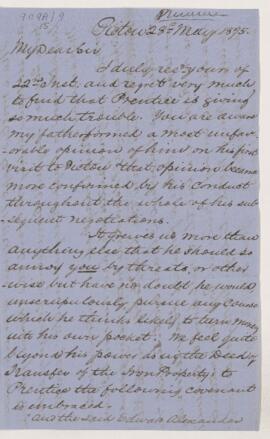 909A/9
15
Pictou 28th May 1895.
My Dear Sir
I duly recd yours of
22nd Inst. and regret very much
to find that Prentice is giving
so much trouble. You are aware
my father formed a most unfav-
orable opinion of him on his first
visit to Pictou & that opinion became
more confirmed by his Conduct
throughout the whole of his sub-
sequent negotiations.
It grieves us more than
anything else that he should so
annoy you by threats, or other
wise but have no doubt he would
unscrupulously pursue any Course
which he thinks likely to turn money
into his own pocket. We feel quite
beyond his power as in the Deed of
Transfer of the Iron Property to
Prentice the following covenant
is embraced.
"And the said Edward Alexander